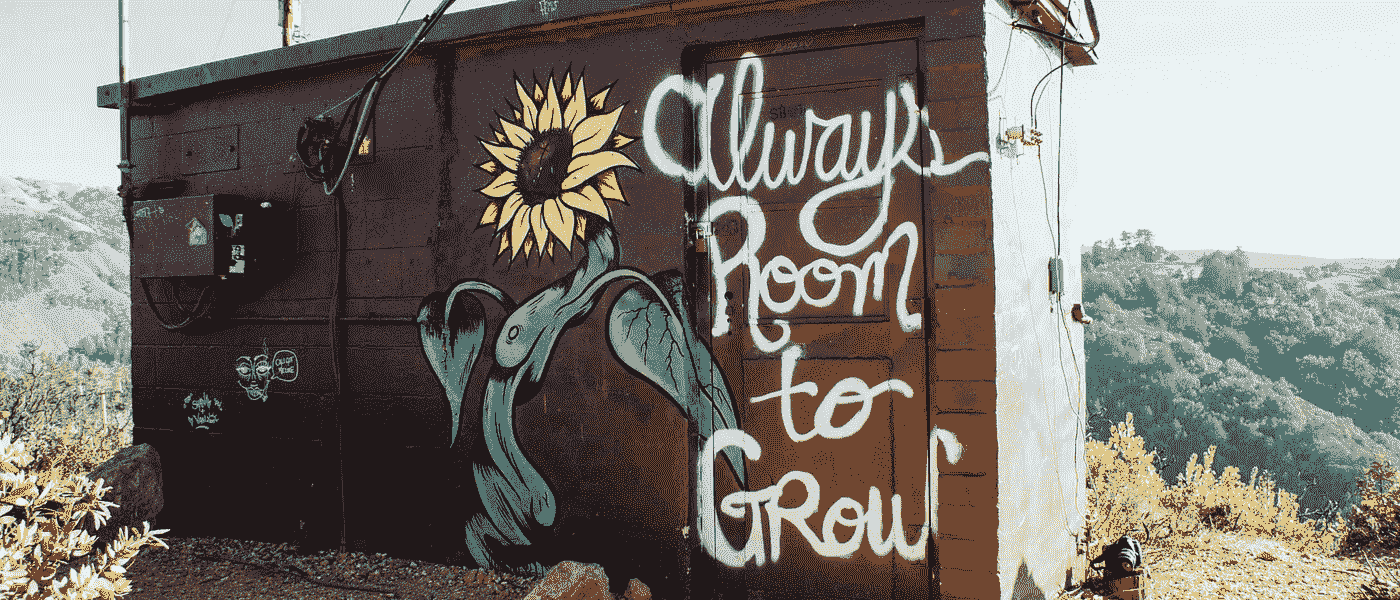 Always
Room
to
GRow